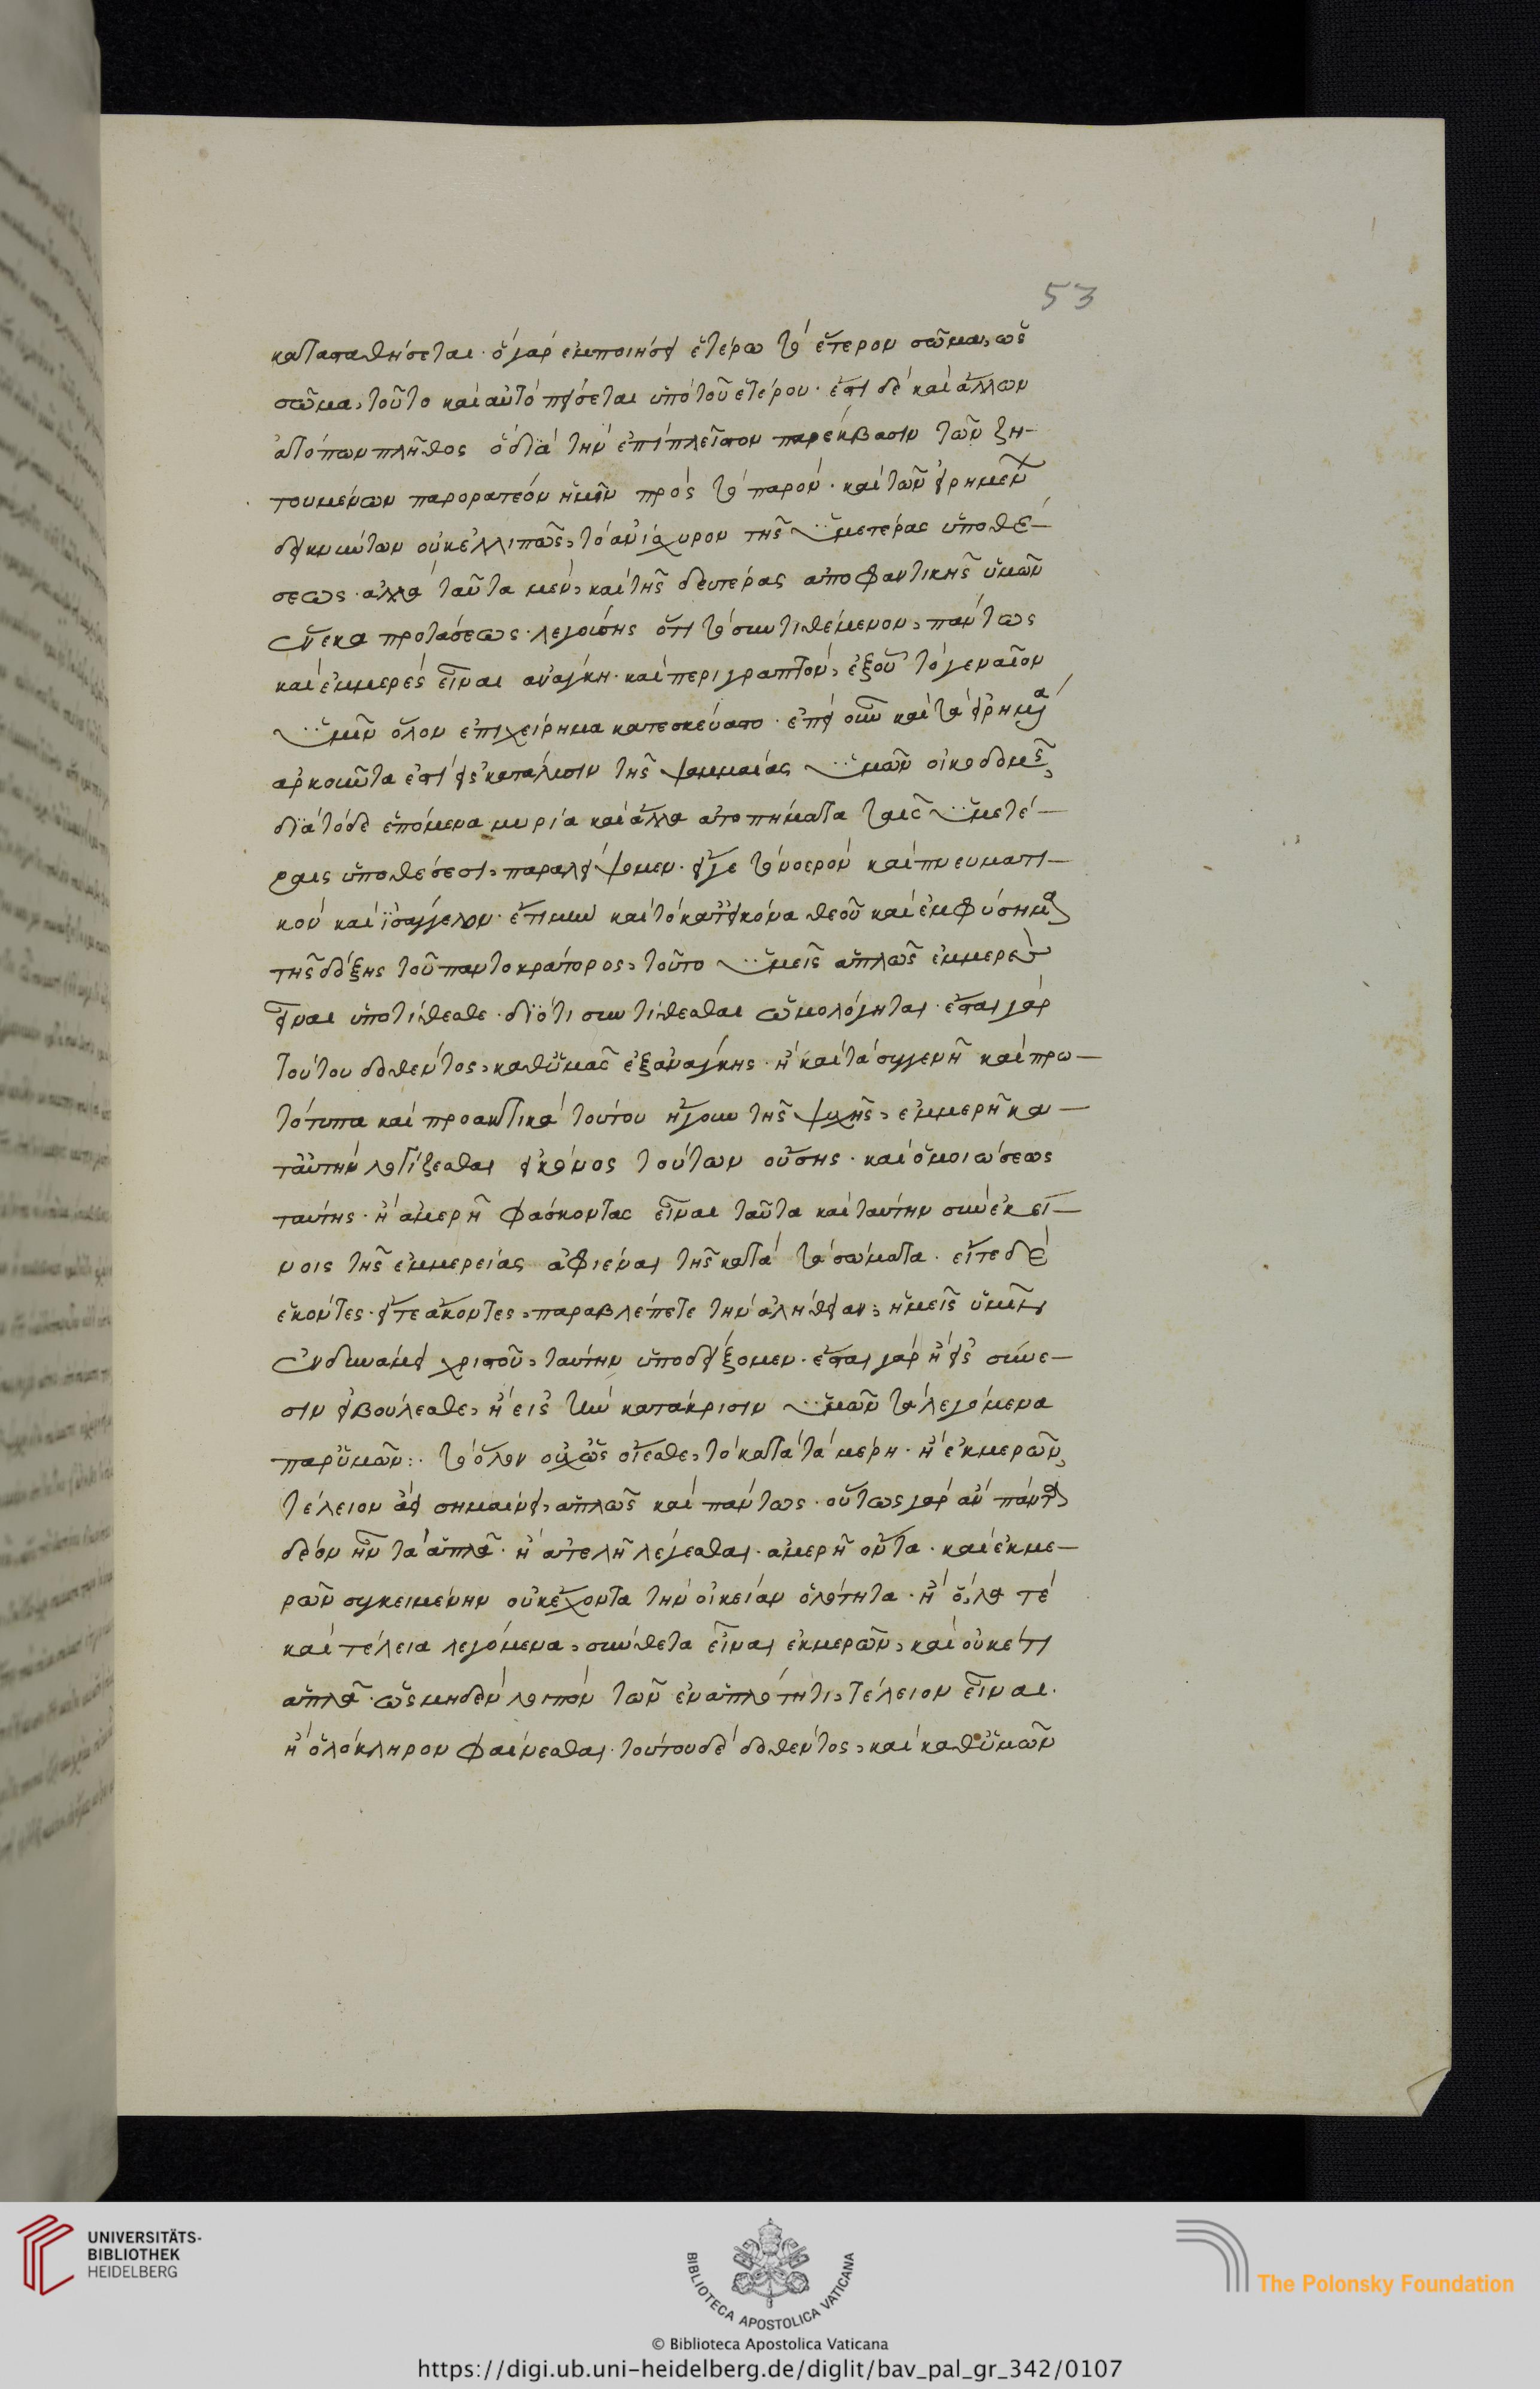 53
καταπαθήσεται· ὃ γὰρ ἐμποιήσει ἑτέρω τὸ ἕτερον σῶμα, ὡς
σῶμα, τοῦτο καὶ αὐτὸ πείσεται ὑπὸ τοῦ ἑτέρου· ἔστι δὲ καὶ ἄλλων
ἀτόπων πλῆθος ὃ διὰ τὴν ἐπιπλεῖστον παρέκβασιν τῶν ζη-
τουμένων παρορατέον ἡμῖν πρὸς τὸ παρόν· καὶ τῶν εἰρημένων
δεικνύντων οὐκ ἐλλιπῶς, τὸ ἀνίσχυρον τῆς ὑμετέρας ὑποθέ-
σεως· ἀλλὰ ταῦτα μὲν, καὶ τῆς δευτέρας ἀποφαντικῆς ὑμῶν
ἕνεκα προτάσεως· λεγούσης ὅτι τὸ συντιθέμενον, πάντως
καὶ ἐμμερές εἶναι ἀνάγκη· καὶ περιγραπτόν, ἐξ οὗ τὸ γενναῖον
ὑμῖν ὅλον ἐπιχείρημα κατεσκεύαστο· ἐπεὶ οὖν καὶ τὰ εἰρημένα
ἀρκοῦντα ἐστὶ εἰς κατάλυσιν τῆς ψαμμαίας ὑμῶν οἰκοδομῆς,
διὰ τόδε ἑπόμενα μυρία καὶ ἄλλα ἀτοπήματα ταῖς ὑμετέ-
ραις ὑποθέσεσι, παραλείψομεν· εἴγε τὸ νοερὸν καὶ πνευματι-
κὸν καὶ ἰσάγγελον· ἔτι μὴν καὶ τὸ κατ' εἰκόνα θεοῦ καὶ ἐμφύσημα
τῆς δόξης τοῦ παντοκράτορος, τοῦτο ὑμεῖς ἁπλῶς ἐμμερὲς
εἶναι ὑποτίθεσθε· διότι συντίθεσθαι ὡμολόγηται· ἔσται γὰρ
τούτου δοθέντος, καθ' ὑμᾶς ἐξανάγκης· ἢ καὶ τὰ συγγενῆ καὶ πρω-
τότυπα καὶ προακτικὰ τούτου ἤγουν τῆς ψυχῆς, ἐμμερῆ κα-
τ' αὐτὴν λογίζεσθαι εἰκόνος τούτων οὔσης· καὶ ὁμοιώσεως
ταύτης· ἢ ἀμερῆ φάσκοντας εἶναι ταῦτα καὶ ταύτην σὺν ἐκεί-
νοις τῆς ἐμμερείας ἀφιέναι τῆς κατὰ τὰ σώματα· εἴτε δὲ
ἑκόντες· εἴτε ἄκοντες, παραβλέπετε τὴν ἀλήθειαν, ἡμεῖς ὑμῖν
ἐν δυνάμει χριστοῦ, ταύτην ὑποδείξομεν· ἔσται γὰρ ἢ εἰς σύνε-
σιν εἰ βούλεσθε, ἢ εἰς τὴν κατάκρισιν ὑμῶν τὰ λεγόμενα
παρ' ὑμῶν:· τὸ ὅλον οὐχ ὡς οἴεσθε, τὸ κατὰ τὰ μέρη· ἢ ἐκ μερῶν,
τέλειον ἀεὶ σημαίνει, ἁπλῶς καὶ πάντως· οὕτως γὰρ ἂν πάντα
δέον ἦν τὰ ἁπλᾶ· ἢ ἀτελῆ λέγεσθαι· ἀμερῆ ὄντα· καὶ ἐκ με-
ρῶν συγκειμένην οὐκ ἔχοντα τὴν οἰκείαν ὁλότητα· ἢ ὅλα τέ
καὶ τέλεια λεγόμενα, σύνθετα εἶναι ἐκ μερῶν, καὶ οὐκέτι
ἁπλᾶ· ὡς μηδὲν λοιπὸν τῶν ἐν ἁπλότητι, τέλειον εἶναι·
ἢ ὁλόκληρον φαίνεσθαι· τούτου δὲ δοθέντος, καὶ καθ' ὑμῶν
UNIVERSITÄTS-
BIBLIOTHEK
HEIDELBERG
BIBLIOTECA APOSTOLICA VATICANA
The Polonsky Foundation
© Biblioteca Apostolica Vaticana
https://digi.ub.uni-heidelberg.de/diglit/bav_pal_gr_342/0107